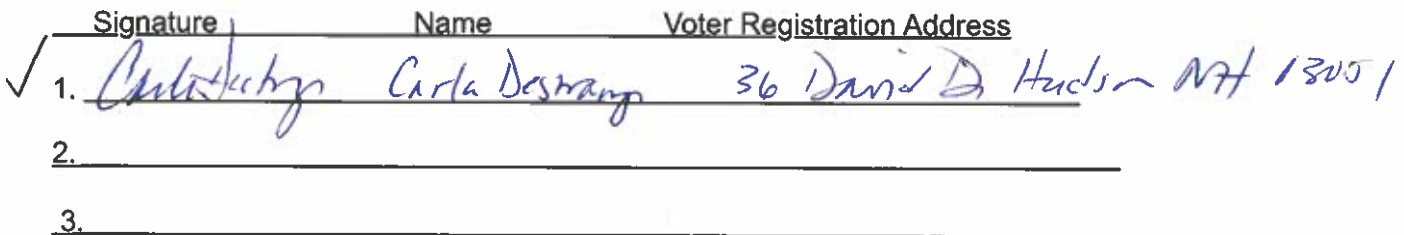 Signature Name Voter Registration Address
✓ 1. Carla 36 David Dr Hudson NH
2.
3.